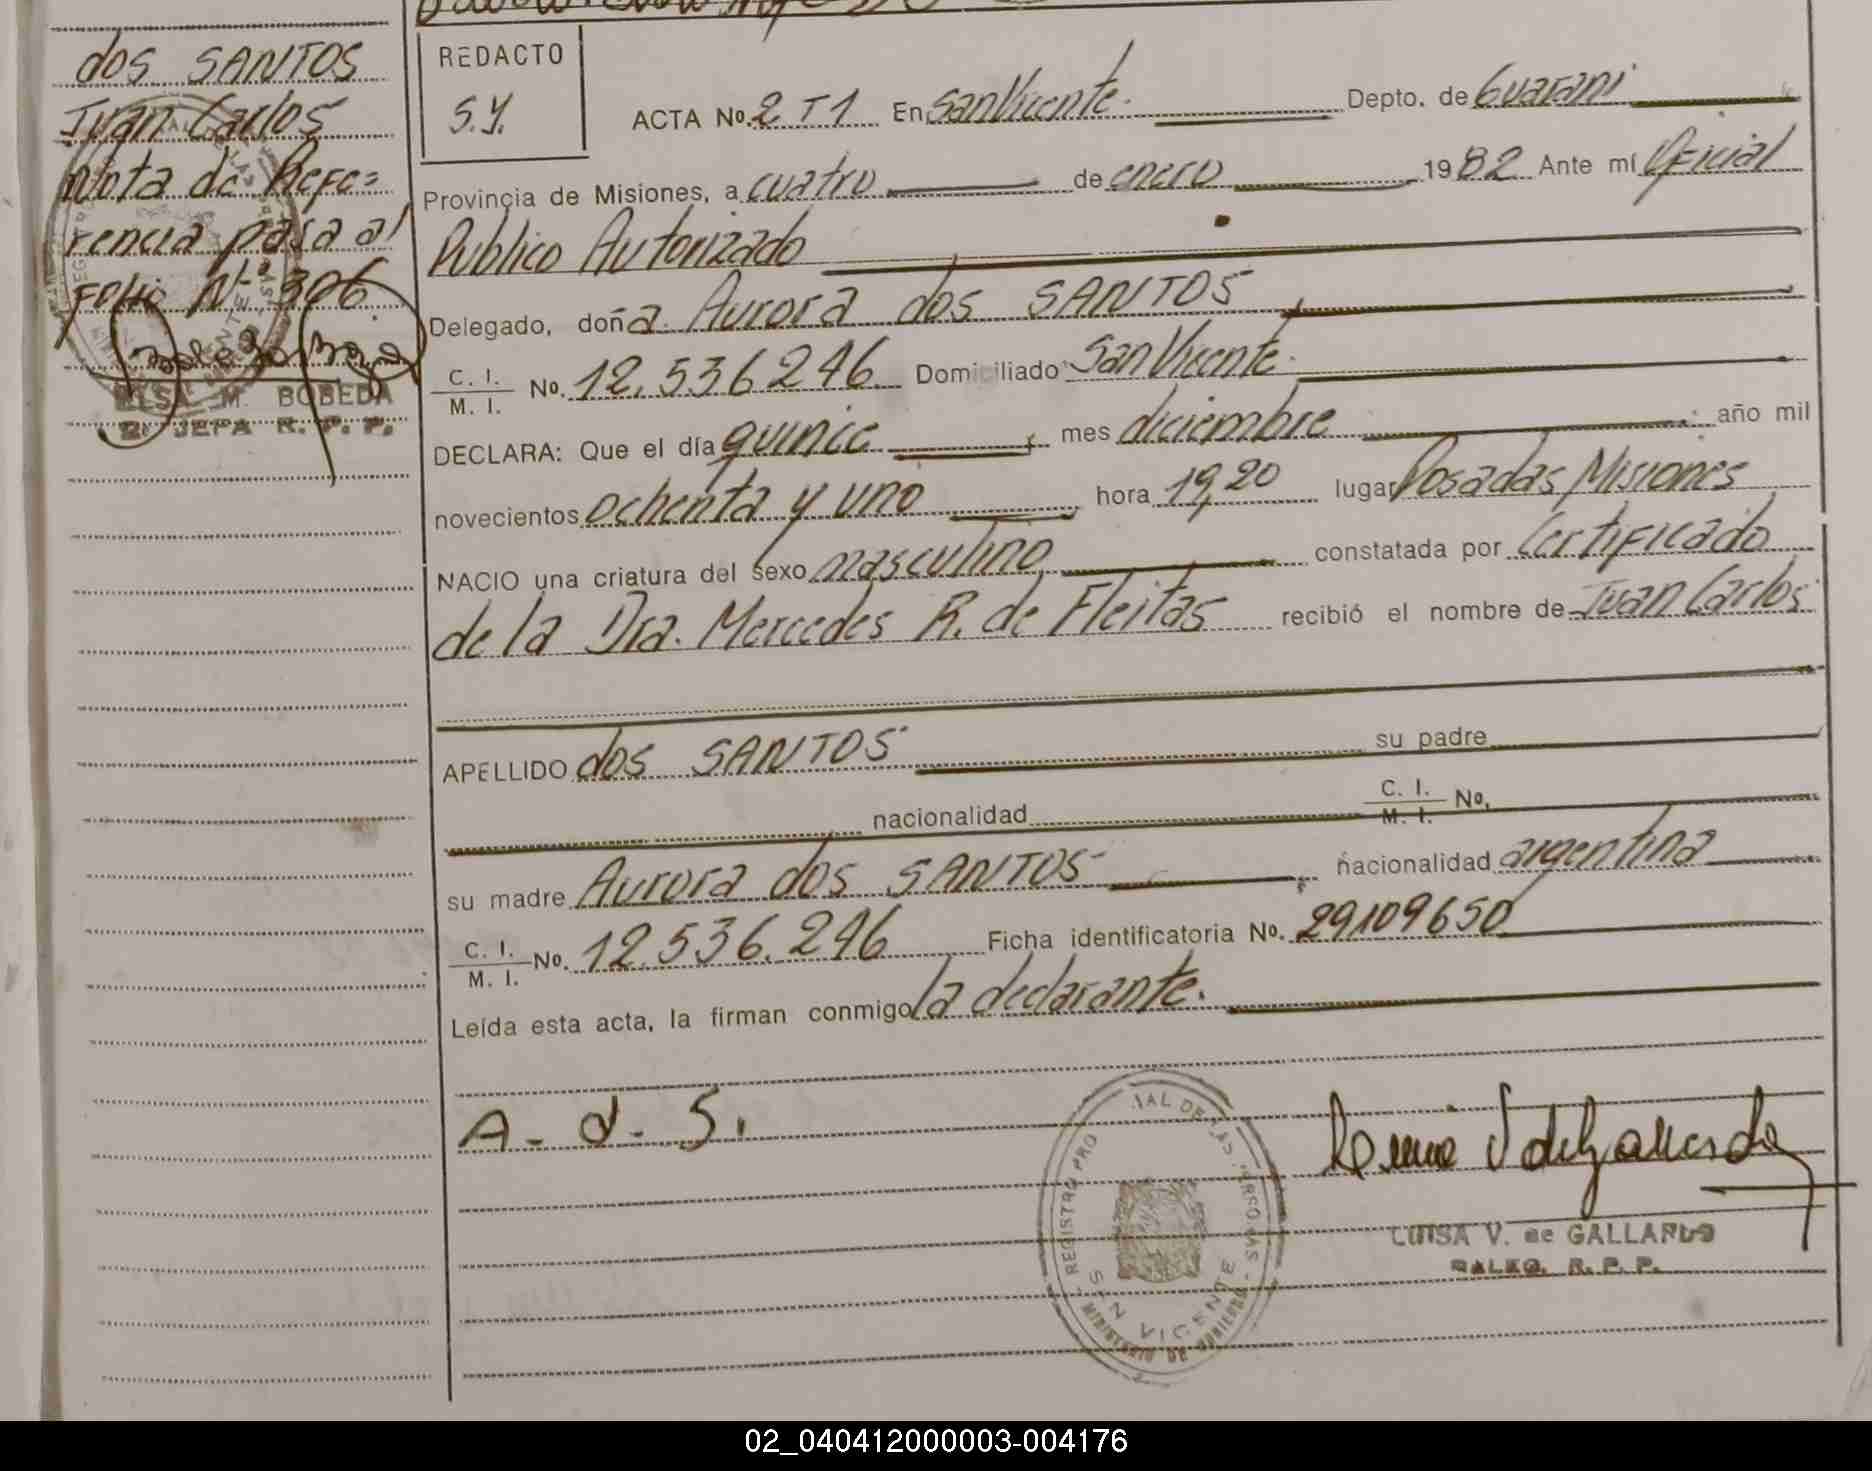 dos SANTOS
Juan Carlos
Nota de Refe=
rencia pasa al
Folio Nº 306
ELSA M. BOBEDA
2º JEFA R. P. P.
REDACTO
S.Y.
ACTA No. 2 T1 En San Vicente. Depto. de Guarani
Provincia de Misiones, a cuatro de enero 1982 Ante mí Oficial
Publico Autorizado
Delegado, doña Aurora dos SANTOS
C. I.
M. I. No. 12.536.246 Domiciliado San Vicente.
DECLARA: Que el día quince mes diciembre año mil
novecientos ochenta y uno hora 19,20 lugar Posadas, Misiones
NACIO una criatura del sexo masculino constatada por Certificado
de la Dra. Mercedes R. de Fleitas recibió el nombre de Juan Carlos
APELLIDO dos SANTOS su padre
nacionalidad C. I.
M. I. No.
su madre Aurora dos SANTOS nacionalidad argentina
C. I.
M. I. No. 12.536.246 Ficha identificatoria No. 29109650
Leída esta acta, la firman conmigo la declarante.
A. d. S.
REGISTRO PRO IAL DE LAS PERSONAS
SAN VICENTE
MINISTERIO DE GOBIERNO
LUISA V. de GALLARDO
R. P. P.
02_040412000003-004176